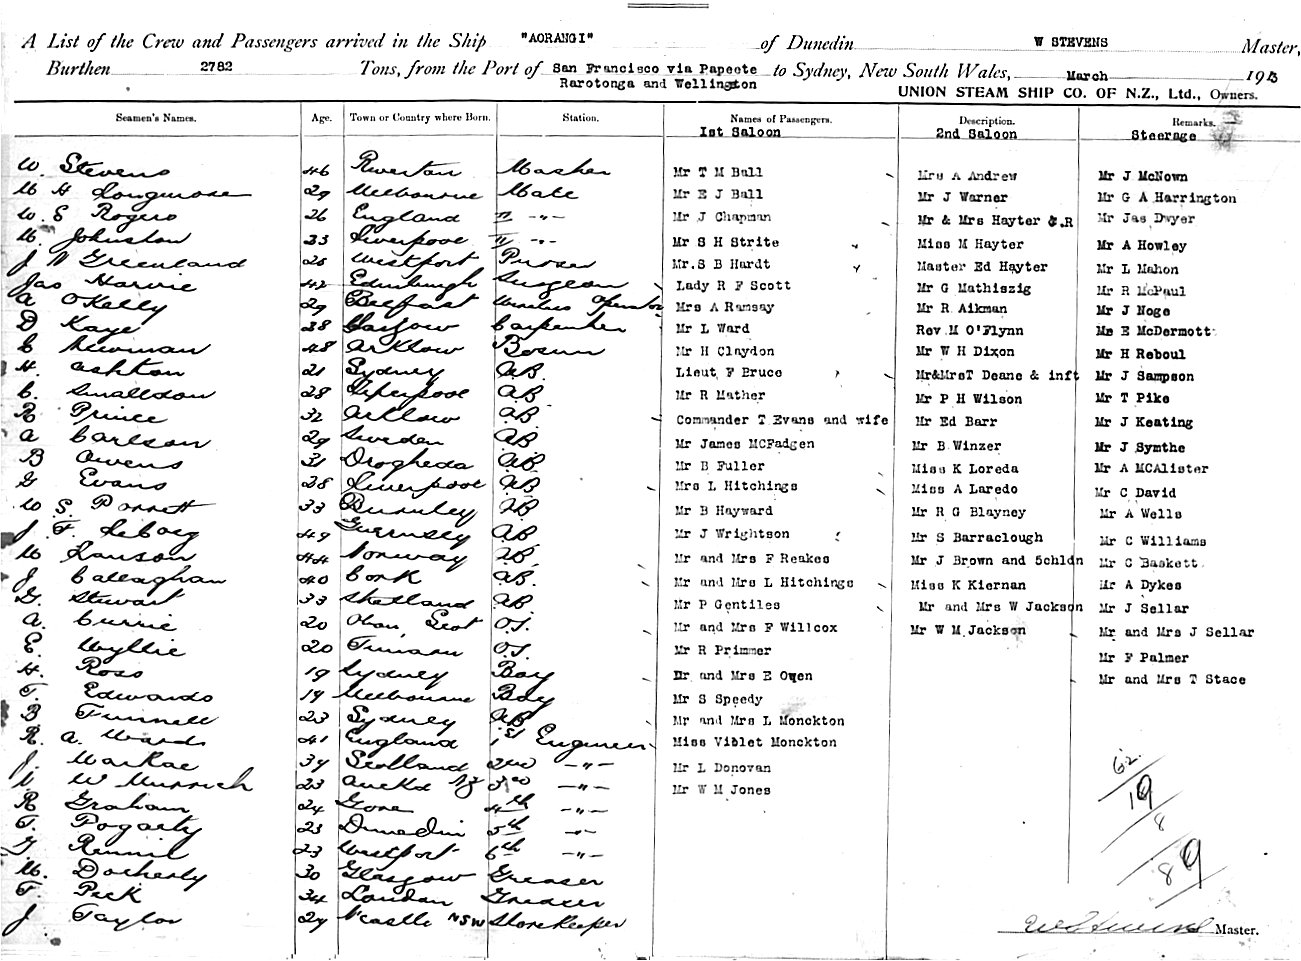 A List of the Crew and Passengers arrived in the Ship "AORANGI" of Dunedin W STEVENS Master,
Burthen 2782 Tons, from the Port of San Francisco via Papeete to Sydney, New South Wales, March 1913
Rarotonga and Wellington UNION STEAM SHIP CO. OF N.Z., Ltd., Owners.
Seamen's Names. Age. Town or Country where Born. Station. Names of Passengers. Description. Remarks.
1st Saloon 2nd Saloon Steerage
W. Stevens 46 Riverton Master Mr T M Ball Mrs A Andrew Mr J McNown
29 Melbourne Mate Mr E J Ball Mr J Warner Mr G A Harrington
W. E Rogers 26 England II -"- Mr J Chapman Mr & Mrs Hayter & R Mr Jas Dwyer
W. Johnston 33 Liverpool II -"- Mr S H Strite Miss M Hayter Mr A Howley
J W Greenland 26 Westport Purser Mr.S B Hardt Master Ed Hayter Mr L Mahon
Jas Harvie 42 Edinburgh Surgeon Lady R F Scott Mr G Mathiszig Mr R McPaul
A OKelly 29 Belfast Wireless Operator Mrs A Ramsay Mr R Aikman Mr J Noge
D Kaye 38 Glasgow Carpenter Mr L Ward Rev.M O'Flynn Ms E McDermott
C Newman 48 Arklow Bosun Mr H Claydon Mr W H Dixon Mr H Reboul
H. Ashton 21 Sydney AB. Lieut F Bruce Mr&MrsT Deane & inft Mr J Sampson
C. Smalldon 28 Liverpool AB. Mr R Mather Mr P H Wilson Mr T Pike
R Prince 32 Arklow AB. Commander T Evans and wife Mr Ed Barr Mr J Keating
A Carlson 29 Sweden AB. Mr James MCFadgen Mr B Winzer Mr J Symthe
B Owens 31 Drogheda AB. Mr B Fuller Miss K Loreda Mr A MCAlister
G Evans 28 Liverpool AB Mrs L Hitchings Miss A Laredo Mr C David
W S. Parrett 33 Burnley AB Mr B Hayward Mr R G Blayney Mr A Wells
J. F. 49 Guernsey AB Mr J Wrightson Mr S Barraclough Mr C Williams
44 Norway AB. Mr and Mrs F Reakes Mr J Brown and 5chldn Mr C Baskett
J Callaghan 40 Cork AB. Mr and Mrs L Hitchings Miss K Kiernan Mr A Dykes
G. Stewart 33 Shetland AB. Mr P Gentiles Mr and Mrs W Jackson Mr J Sellar
A. Currie 20 Oban, Scot O.S. Mr and Mrs F Willcox Mr W M Jackson Mr and Mrs J Sellar
E. Wyllie 20 Timaru O.S. Mr R Primmer Mr F Palmer
H. Ross 19 Sydney Boy Dr and Mrs E Owen Mr and Mrs T Stace
T. Edwards 19 Melbourne Boy Mr S Speedy
B Funnell 23 Sydney AB Mr and Mrs L Monckton
R. A. Ward 41 England 1st Engineer Miss Violet Monckton
J. MacRae 39 Scotland 2nd -"- Mr L Donovan
W 23 Auckd NZ 3rd -"- Mr W M Jones
R Graham 24 Gore 4th -"-
T. Fogarty 23 Dunedin 5th -"-
23 Westport 6th -"-
W. Docherty 30 Glasgow Greaser
T. Peck 34 London Greaser
J Taylor 29 N'castle NSW Storekeeper
62
19
8
89
W Stevens Master.